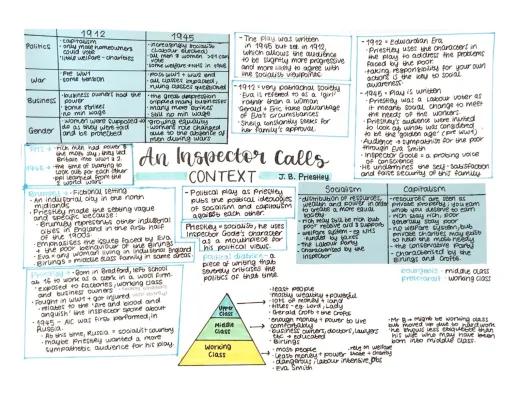 1912
1945
Politics
- capitalism
- only male homeowners could vote
- little welfare - charities
- increasingly socialist
(Labour elected)
- all men & women >21 can vote
- some welfare + NHS in 1948
War
- Pre WW1
- some tension
- Most WW1 + WW2 end
- all classes impacted,
ruling classes questioned
Business
- business owners had the power
- some strikes
- no min wage
- the great depression
crippled many businesses
- many more strikes
- still no min wage
Gender
- women were supposed to
do as they were told
and be protected
- women's role changed
due to the absence of
men during wars
- The play was written
in 1945 but set in 1912,
which allows the audience
to be slightly more progressive
and more likely to agree with
the socialist viewpoints
- 1912 = very patriarchal society
- Eva is referred to as a 'girl'
rather than a woman
- Gerald + Eric take advantage
of Eva's circumstances
- Sheila constantly looks for
her family's approval.
- 1912 = Edwardian Era
- Priestley uses the characters in
the play to address the problems
faced by the poor
- taking responsibility for your own
actions is the key to social
awareness
- 1945 - Play is written
- Priestley was a Labour voter as
it meant social change to meet
the needs of the workers
- Priestley's audience were invited
to look at what was considered
to be the 'golden age' (pre WW1)
- Audience → sympathise for the poor
through Eva Smith
- Inspector Goole = a probing voice
of conscience
- He undermines the self-satisfaction
and false security of this family
1911 → rich men had power &
the most say, they led
Britain into WW1 & 2.
1945 → the time of starting to
look out for each other
ppl learned from the
2 world wars
An Inspector Calls
CONTEXT
J. B. Priestley
Brumley → Fictional setting
- An industrial city in the north
midlands
- Priestley made the setting vague
and specific because:
- Brumley represents other industrial
cities in England in the first half
of the 1900s
- Emphasises the issues faced by Eva
+ the poor behaviour of the Birlings
- Eva = any woman living in industrial England
- Birlings = middle class family in same areas
Priestley → Born in Bradford, left school
at 16 to work as a clerk in a wool firm
- exposed to factories, working class
and business owners
- Fought in WW1 + got injured
- relates to the 'fire and blood and
anguish' the inspector spoke about
- 1945 → AIC was first performed in
Russia.
- At this time, Russia = socialist country
- maybe Priestley wanted a more
sympathetic audience for his play.
- Political play as Priestley
puts the political ideologies
of socialism and capitalism
against each other.
- Priestley = socialist, he uses
Inspector Goole's character
as a mouthpiece for
his political views.
- Political diatribe = a
piece of writing that
severely criticises the
politics of that time.
Socialism
- distribution of resources,
wealth and power in order
to create a more equal
society
- rich may still be rich but
poor receive aid & support
- welfare system - eg NHS
funded by taxes
- the Labour Party
- Characterised by the
inspector
Capitalism
- resources are seen as
private property: you earn
what you deserve to earn
- rich stay rich, poor
generally stay poor
- no welfare system, but
private charities may exist
to help the most needy
- the Conservative Party
- Characterised by the
Birlings and Crofts
bourgeoisie - middle class
proletariat - working class
Upper Class
Middle Class
Working Class
- least people
- mostly wealthy + powerful
- lots of money + land
- titles - eg: Lord, Lady
- Gerald Croft + the Crofts
- enough money + power to live
comfortably
- business owners, doctors, lawyers
etc + educated
- Birlings
- most people
- least money + power
- dangerous / labour intensive jobs
- Eva Smith
- rely on welfare
state + charity
Mr B = might be working class
but moved up due to hard work